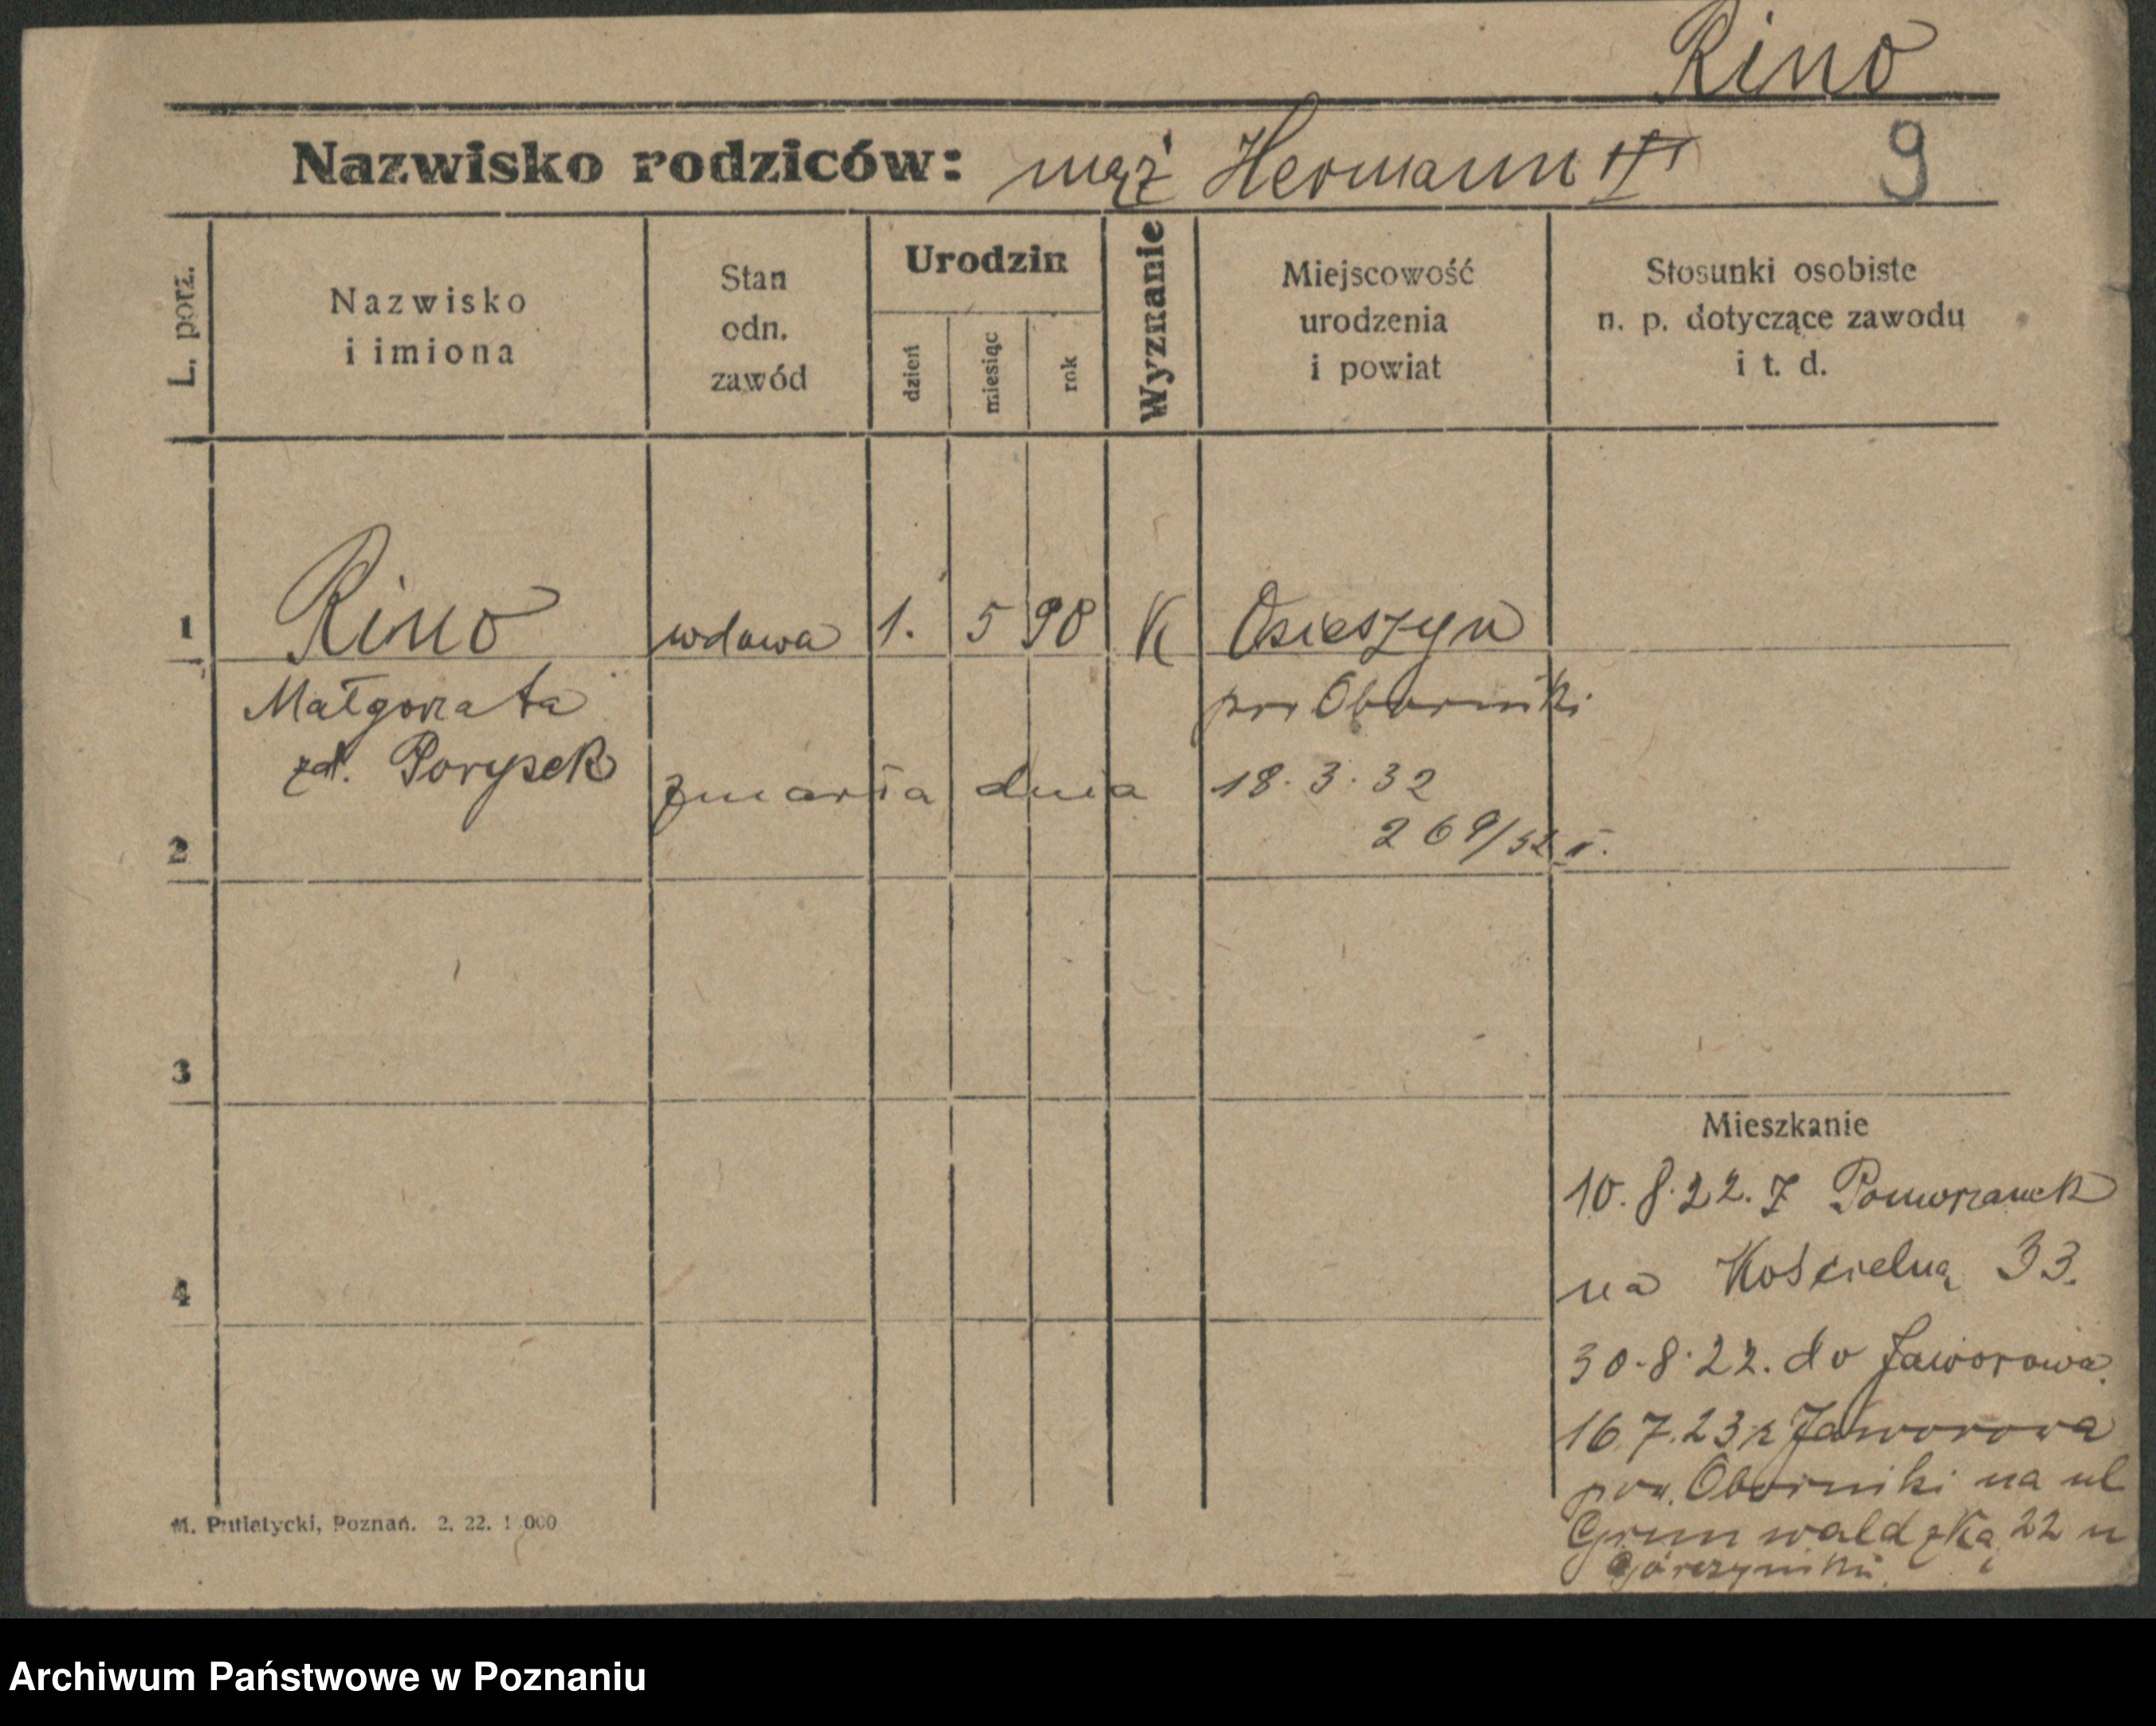 Rino
Nazwisko rodziców: mąż Hermann 9
L. porz.
Nazwisko i imiona
Stan odn. zawód
Urodzin
dzień miesiąc rok
Wyznanie
Miejscowość urodzenia i powiat
Stosunki osobiste n. p. dotyczące zawodu i t. d.
1 Rino wdowa 1. 5 90 K Osieszyn
Małgorzata pow Oborniki
zd. Porysek zmarła dnia 18.3.32
269/32
2
3
Mieszkanie
10.8.22. z Pomorzanek
na Kościelną 33.
4
30.8.22. do Jaworowa.
16.7.23 z Jaworowa
pow. Oborniki na ul
Grunwaldzką 22 u
M. Putiatycki, Poznań. 2. 22. 1.000
Archiwum Państwowe w Poznaniu